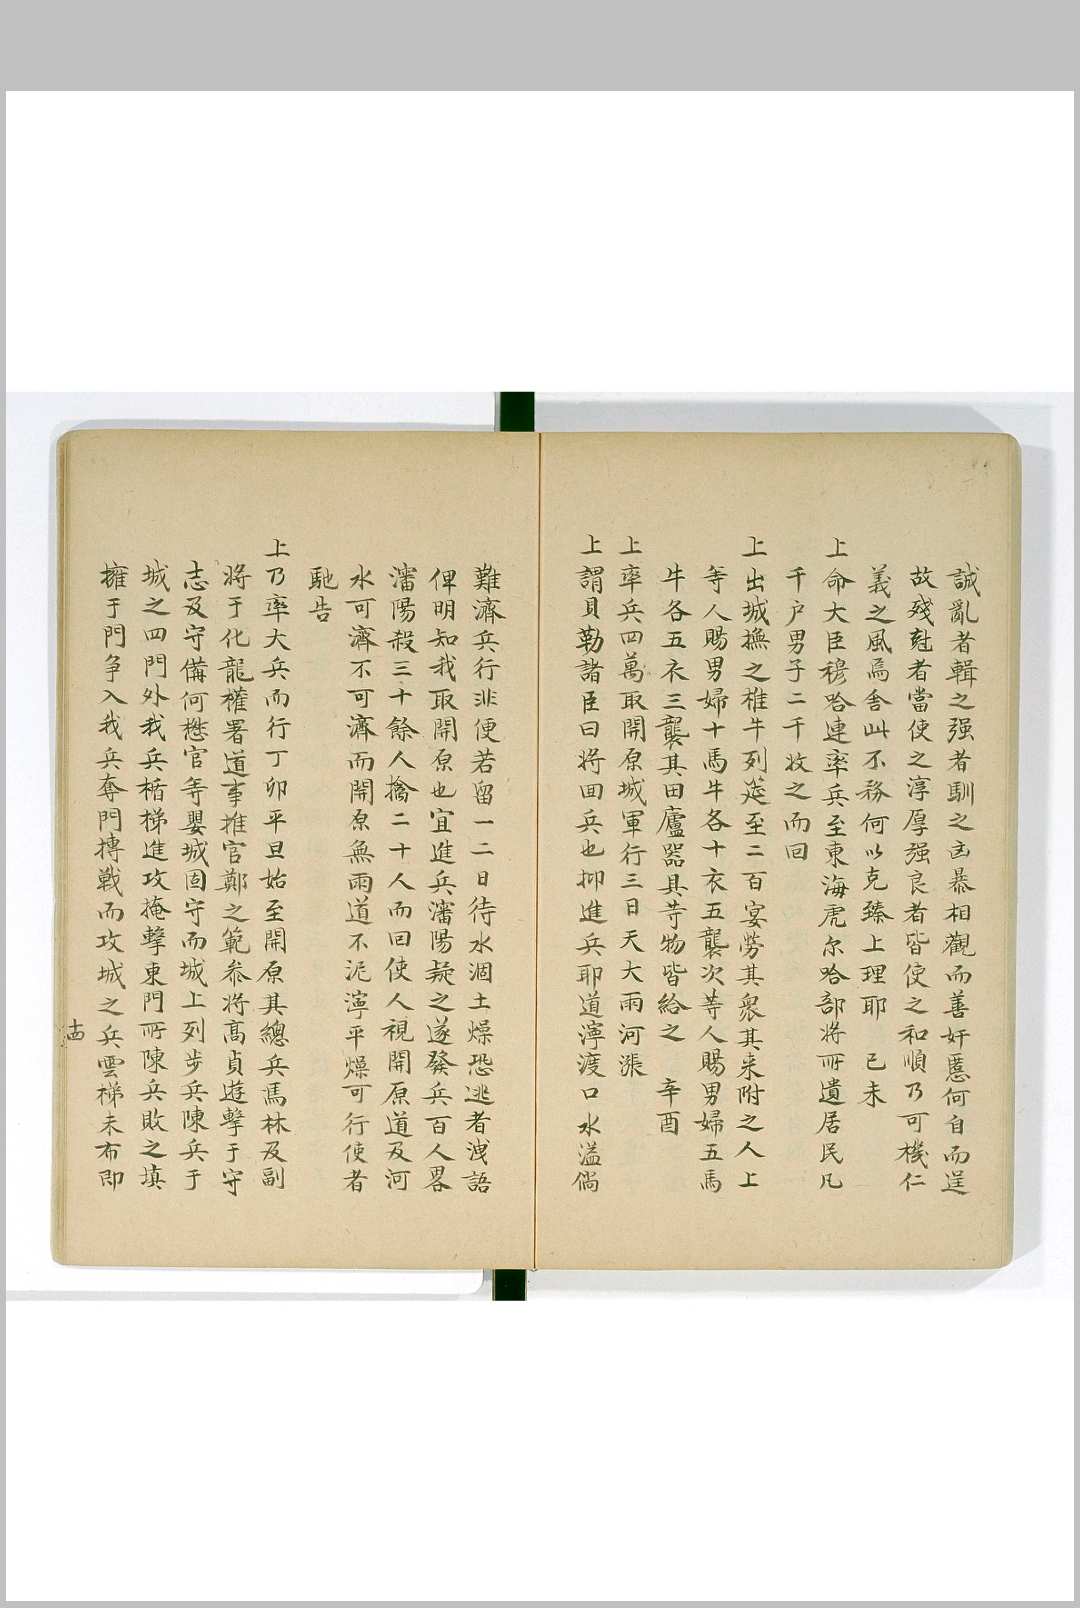 誠亂者輯之强者馴之凶暴相觀而善奸慝何自而逞
故殘尅者當使之淳厚强良者皆使之和順乃可機仁
義之風焉舍此不務何以克臻上理耶　己未
上命大臣穆哈連率兵至東海虎尔哈部將所遺居民凡
千户男子二千收之而回
上出城撫之椎牛列筵至二百宴勞其衆其来附之人上
等人賜男婦十馬牛各十衣五襲次等人賜男婦五馬
牛各五衣三襲其田廬器具等物皆給之　辛酉
上率兵四萬取開原城軍行三日天大雨河漲
上謂貝勒諸臣曰將回兵也抑進兵耶道濘渡口水溢倘
難濟兵行非便若留一二日待水涸土燥恐逃者洩語
俾明知我取開原也宜進兵瀋陽疑之遂發兵百人畧
瀋陽殺三十餘人擒二十人而回使人視開原道及河
水可濟不可濟而開原無雨道不泥濘平燥可行使者
馳告
上乃率大兵而行丁卯平旦始至開原其總兵馬林及副
将于化龍權署道事推官鄭之範叅将髙貞遊擊于守
志及守備何懋官等嬰城固守而城上列步兵陳兵于
城之四門外我兵楯梯進攻掩擊東門所陳兵敗之填
擁于門争入我兵奪門摶戰而攻城之兵雲梯未布即
十四